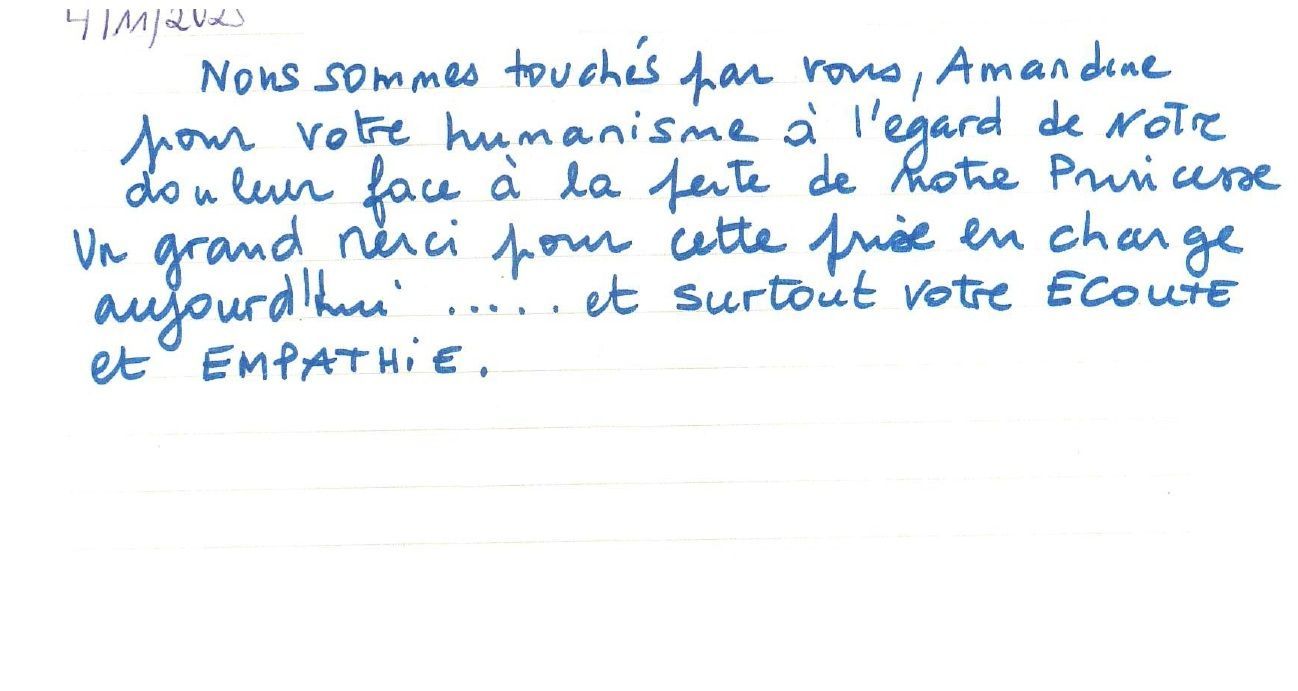 4/11/2025
Nous sommes touchés par vous, Amandine
pour votre humanisme à l'egard de NOTRE
douleur face à la perte de notre Princesse
Un grand merci pour cette prise en charge
aujourd'hui ..... et surtout votre ECOUTE
et EMPATHiE.